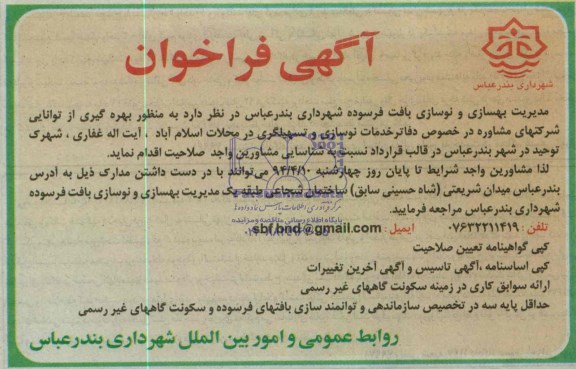 آگهی فراخوان
شهرداری بندرعباس
مدیریت بهسازی و نوسازی بافت فرسوده شهرداری بندرعباس در نظر دارد به منظور بهره گیری از توانایی
شرکتهای مشاوره در خصوص دفاتر خدمات نوسازی و تسهیلگری در محلات اسلام آباد ، آیت اله غفاری ، شهرک
توحید در شهر بندرعباس در قالب قرارداد نسبت به شناسایی مشاورین واجد صلاحیت اقدام نماید.
لذا مشاورین واجد شرایط تا پایان روز چهارشنبه ۹۴/۴/۱۰ می‌توانند با در دست داشتن مدارک ذیل به آدرس
بندرعباس میدان شریعتی (شاه حسینی سابق) ساختمان شجاعی طبقه یک مدیریت بهسازی و نوسازی بافت فرسوده
شهرداری بندرعباس مراجعه فرمایید.
تلفن : ۰۷۶۳۲۲۱۱۴۱۹ ایمیل : sbf.bnd@gmail.com
کپی گواهینامه تعیین صلاحیت
کپی اساسنامه ،آگهی تاسیس و آگهی آخرین تغییرات
ارائه سوابق کاری در زمینه سکونت گاههای غیر رسمی
حداقل پایه سه در تخصیص سازماندهی و توانمند سازی بافتهای فرسوده و سکونت گاههای غیر رسمی
روابط عمومی و امور بین الملل شهرداری بندرعباس